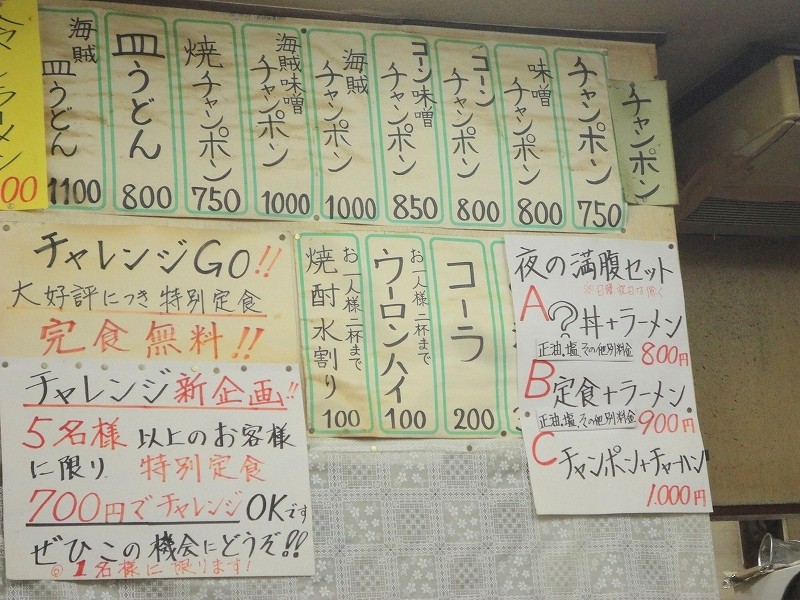 チャンポン
チャンポン
750
味噌チャンポン
800
コーンチャンポン
800
コーン味噌チャンポン
850
海賊チャンポン
1000
海賊味噌チャンポン
1000
焼チャンポン
750
皿うどん
800
海賊皿うどん
1100
ラーメン
00
チャレンジGO!!
大好評につき特別定食
完食無料!!
チャレンジ新企画!!
5名様以上のお客様
に限り 特別定食
700円でチャレンジOKです
ぜひこの機会にどうぞ!!
◎1名様に限ります!
コーラ
200
お一人様二杯まで
ウーロンハイ
100
お一人様二杯まで
焼酎水割り
100
夜の満腹セット
A ?丼+ラーメン
正油、塩 その他別料金 800円
B 定食+ラーメン
正油、塩 その他別料金 900円
C チャンポン+チャーハン
1.000円